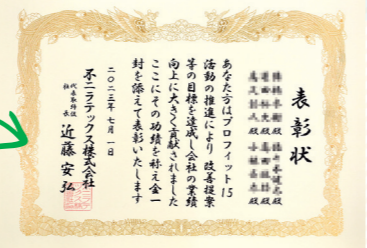 表彰状
あなた方はプロフィット15
活動の推進により改善提案
等の目標を達成し会社の業績
向上に大きく貢献されました
ここにその功績を称え金一
封を添えて表彰いたします
二〇二三年七月一日
不二ラテックス株式会社
代表取締役
社長 近藤安弘